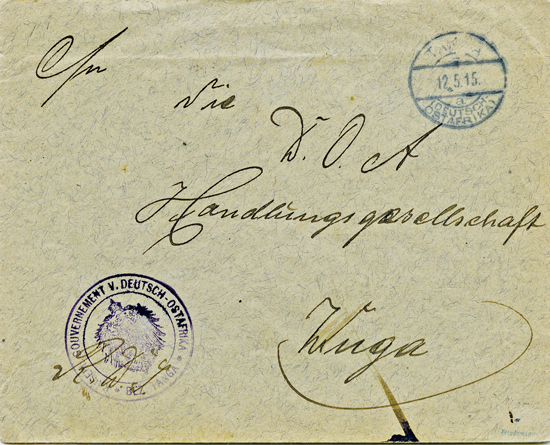 An
die
D. O. A
Handlungsgesellschaft
Wuga
12.5.15.
a
(DEUTSCH-
OSTAFRIKA)
GOUVERNEMENT V. DEUTSCH-OSTAFRIKA
BEZ. TANGA